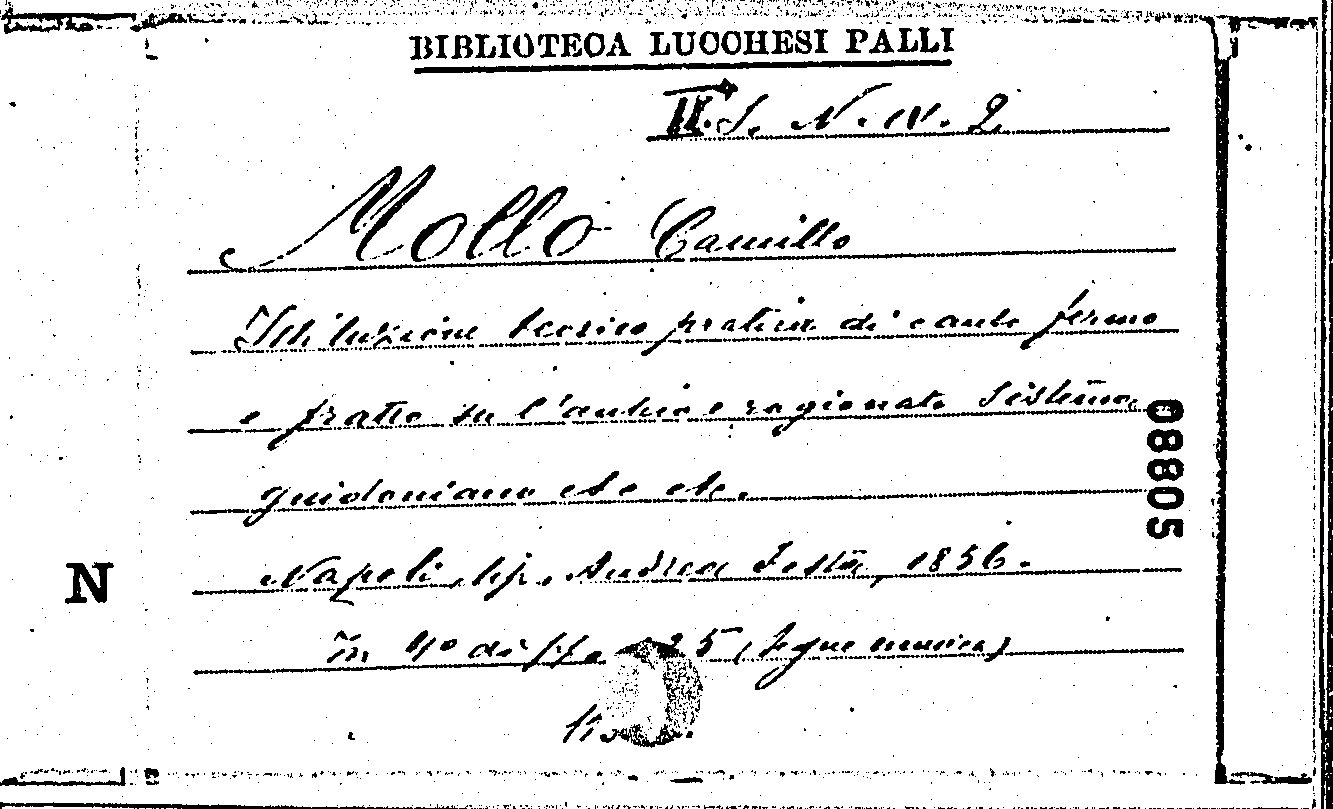 BIBLIOTECA LUCCHESI PALLI
II. S. N. IV. 2
Mollo Camillo
Istituzione teorico pratica di canto fermo
e fratto su l'antico e ragionato sistema
guidoniano etc etc.
Napoli, tip. Andrea Festa, 1856.
In 4° di pp. 25 (segue musica)
N
08805